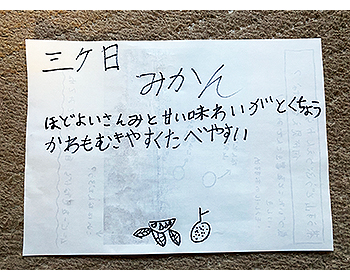 三ケ日
みかん
ほどよいさんみと甘い味わいがとくちょう
かわもむきやすくたべやすい